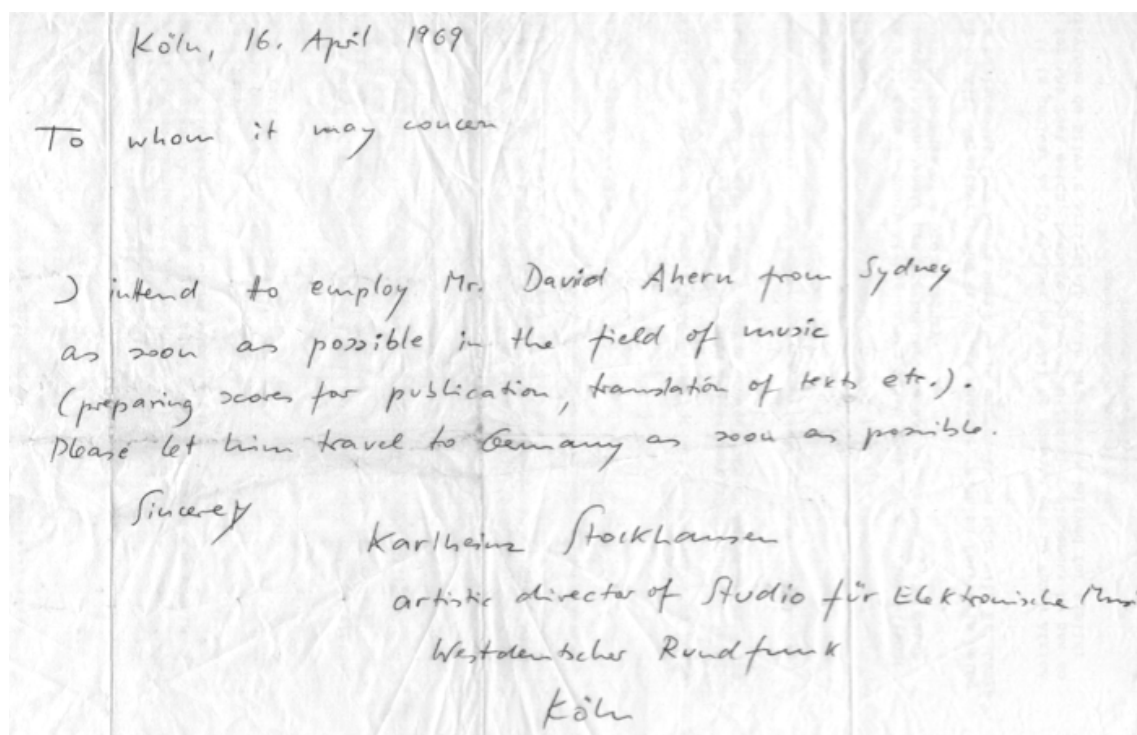 Köln, 16. April 1969
To whom it may concern
I intend to employ Mr. David Ahern from Sydney
as soon as possible in the field of music
(preparing scores for publication, translation of texts etc.).
Please let him travel to Germany as soon as possible.
Sincerely
Karlheinz Stockhausen
artistic director of Studio für Elektronische Musi
Westdeutscher Rundfunk
Köln